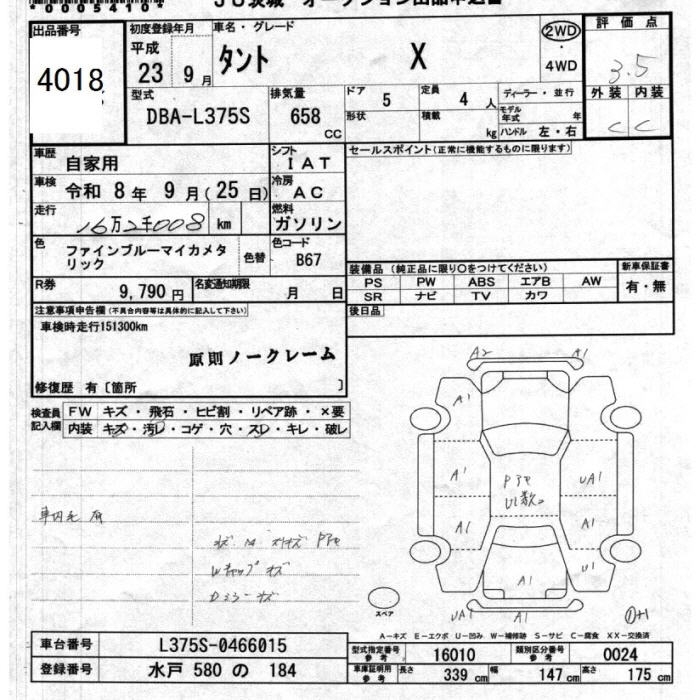 出品番号
4018
初度登録年月
平成
23 9 月
車名・グレード
タント X
2WD
4WD
評価点
3.5
外装 内装
C C
型式
DBA-L375S
排気量
658 CC
ドア 5
形状
定員 4 人
積載 kg
ディーラー・並行
モデル年式 年
ハンドル 左・右
車歴 自家用
シフト IAT
セールスポイント(正常に機能するものに限ります)
車検 令和 8 年 9 月(25 日)
冷房 AC
走行 16万2千008 km
燃料 ガソリン
色 ファインブルーマイカメタリック
色替
色コード B67
装備品(純正品に限り○をつけてください)
新車保証書
PS PW ABS エアB AW
SR ナビ TV カワ
有・無
R券 9,790 円
名変通知期限 月 日
後日品
注意事項申告欄(不具合内容等は具体的に記入して下さい)
車検時走行151300km
原則ノークレーム
修復歴 有〔箇所 〕
検査員記入欄
FW キズ・飛石・ヒビ割・リペア跡・×要
内装 キズ・汚レ・コゲ・穴・スレ・キレ・破レ
A2 A1
A1
A1 Pアセ UA1
UL数。
A1 A1
A1 U1
UA1 A1
スペア
A-キズ E-エクボ U-凹み W-補修跡 S-サビ C-腐食 XX-交換済
車台番号 L375S-0466015
登録番号 水戸 580 の 184
型式指定番号 参考 16010
類別区分番号 参考 0024
車庫証明用 参考 長さ 339 cm 幅 147 cm 高さ 175 cm